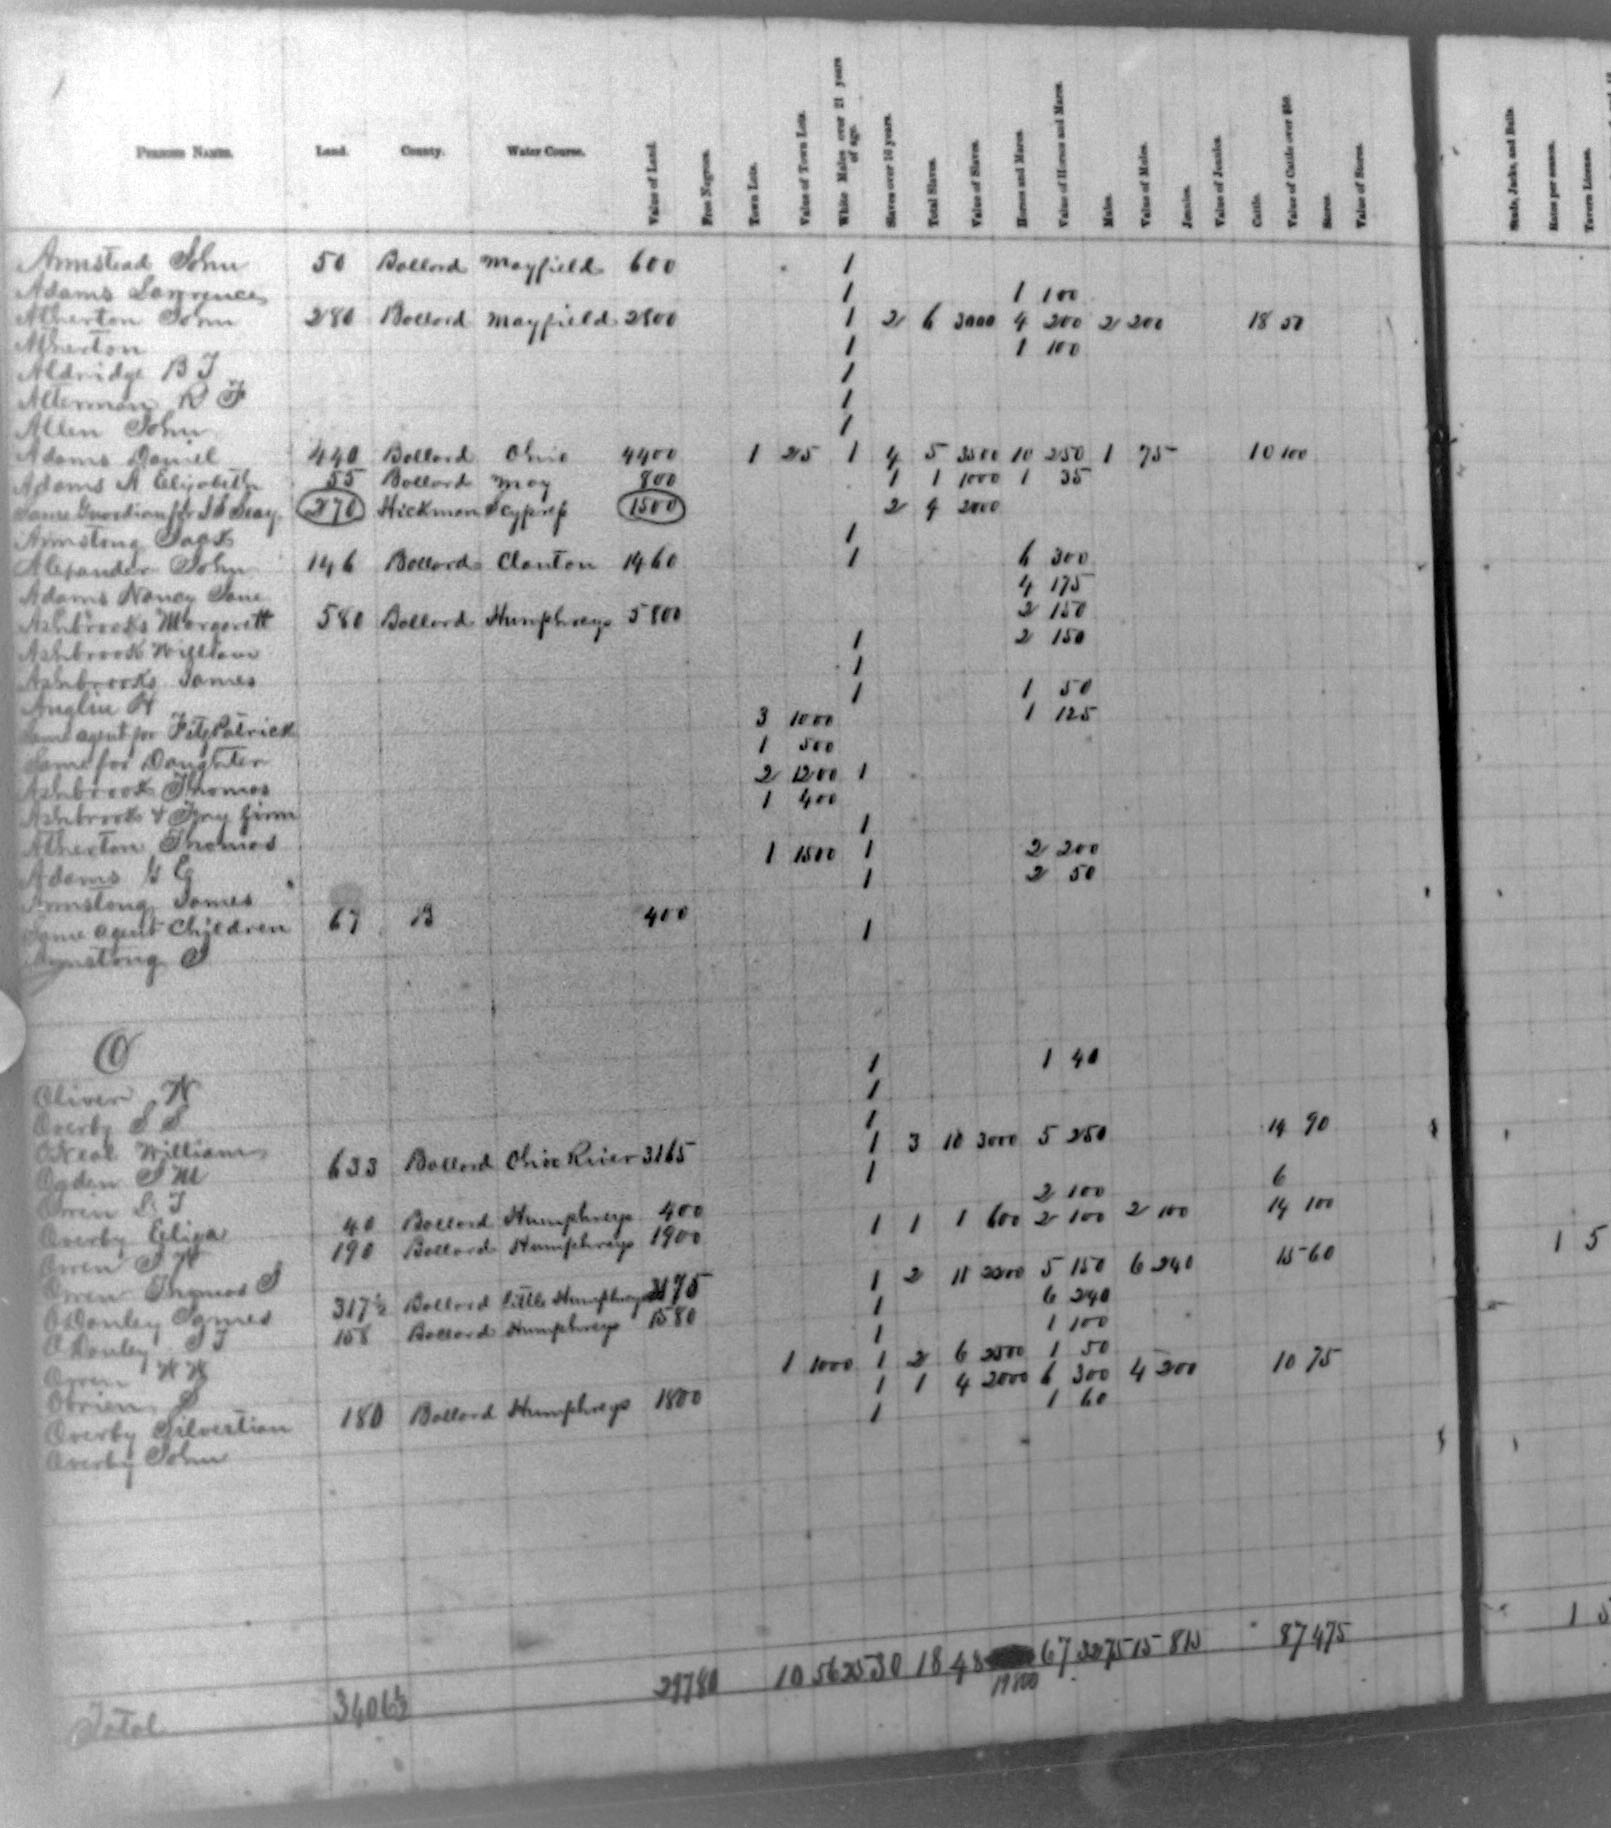 Persons Names. Land. County. Water Course. Value of Land. Free Negroes. Town Lots. Value of Town Lots. White Males over 21 years of age. Slaves over 16 years. Total Slaves. Value of Slaves. Horses and Mares. Value of Horses and Mares. Mules. Value of Mules. Jennies. Value of Jennies. Cattle. Value of Cattle over $50. Stores. Value of Stores. Studs, Jacks, and Bulls. Rates per season. Tavern License.
Armstead John 50 Ballard Mayfield 600 1
Adams Lawrence 1 1 100
Atherton John 280 Ballard Mayfield 2800 1 2 6 3000 4 200 2 200 18 50
Atherton 1 1 100
Aldridge B T 1
Alterman R F 1
Allen John 1
Adams Daniel 440 Ballard Ohio 4400 1 25 1 4 5 3500 10 250 1 75 10 100
Adams A Elizabeth 55 Ballard May 800 1 1 1000 1 35
Same Guardian for Seay 270 Hickman 1500 2 4 2000
Armstong Jack 1
Alexander John 146 Ballard Clanton 1460 1 6 300
Adams Nancy Jane 4 175
Ashbrooks Margarett 580 Ballard Humphreys 5800 2 150
Ashbrook William 1 2 150
Ashbrooks James 1
Anglin H 1 1 50
Same agent for FitzPatrick 3 1000 1 125
Same for Daughter 1 500
Ashbrook Thomas 2 1200 1
Ashbrook & firm 1 400
Atherton Thomas 1
Adams G 1 1500 1 2 200
Armstong James 1 2 50
Same agent Children 67 B 400
Armstong J 1
O
Oliver W 1 1 40
Overby S S 1
ONeal William 1
Ogden J M 633 Ballard Ohio River 3165 1 3 10 3000 5 250 14 90
Owen L T 1
Overby Eliza 40 Ballard Humphreys 400 2 100 6
Owen J W 190 Ballard Humphreys 1900 1 1 1 600 2 100 2 100 14 100 1 5
Owen Thomas J 317½ Ballard Little Humphreys 3175 1 2 11 5 150 6 240 15 60
ODonley James 158 Ballard Humphreys 1580 1 6 240
ODonley J T 1 1 100
Owen W W 1 1000 1 2 6 2500 1 50
Obrien S 180 Ballard Humphreys 1800 1 1 4 2000 6 300 4 200 10 75
Overby Silvestian 1 1 60
Overby John
Total 3406½ 29780 10 5625 30 18 48 19100 67 3275 15 815 87 475 1 5